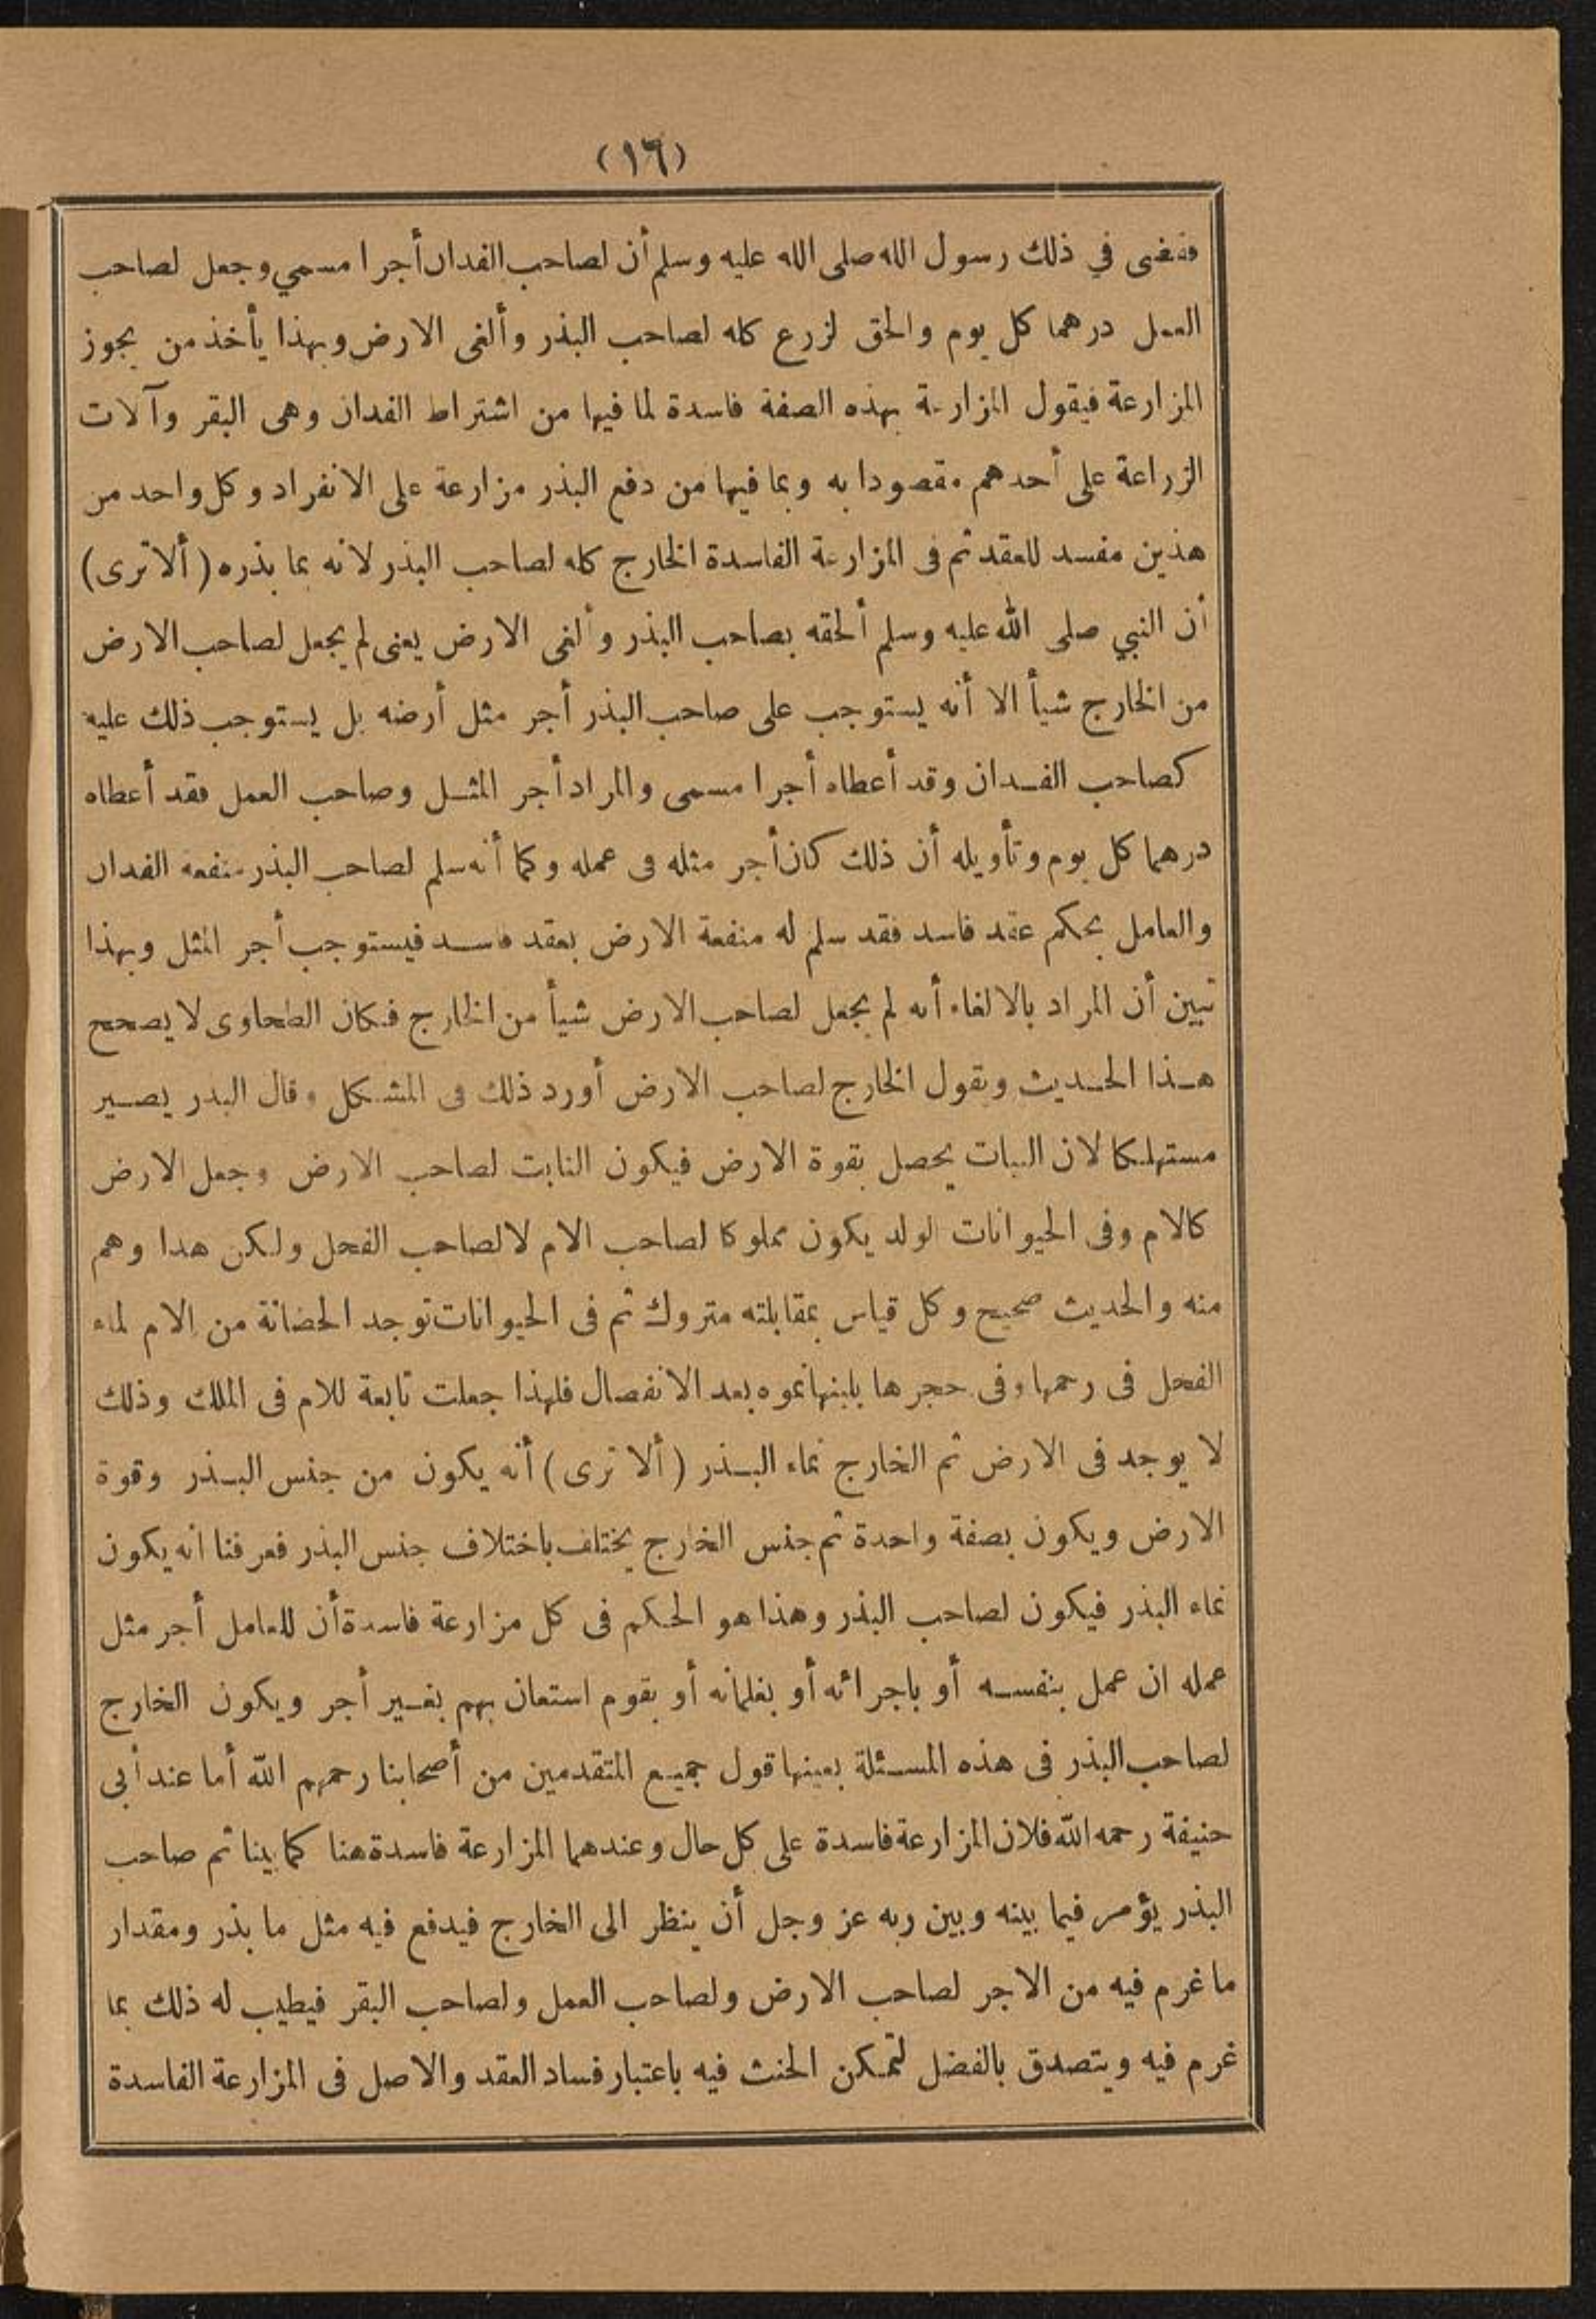 (١٦)
فقضى في ذلك رسول الله صلى الله عليه وسلم أن لصاحب الفدان أجرا مسمي وجعل لصاحب
العمل درهما كل يوم والحق لزرع كله لصاحب البذر وألغى الارض وبهذا يأخذ من يجوز
المزارعة فيقول المزارعة بهذه الصفة فاسدة لما فيها من اشتراط الفدان وهى البقر وآلات
الزراعة على أحدهم مقصودا به وبما فيها من دفع البذر مزارعة على الانفراد وكل واحد من
هذين مفسد للعقد ثم فى المزارعة الفاسدة الخارج كله لصاحب البذر لانه نما بذره ( ألا ترى )
أن النبي صلى الله عليه وسلم ألحقه بصاحب البذر وألغى الارض يعنى لم يجعل لصاحب الارض
من الخارج شيأ الا أنه يستوجب على صاحب البذر أجر مثل أرضه بل يستوجب ذلك عليه
كصاحب الفدان وقد أعطاه أجرا مسمى والمراد أجر المثل وصاحب العمل فقد أعطاه
درهما كل يوم وتأويله أن ذلك كان أجر مثله فى عمله وكما أنه سلم لصاحب البذر منفعه الفدان
والعامل بحكم عقد فاسد فقد سلم له منفعة الارض بعقد فاسد فيستوجب أجر المثل وبهذا
تبين أن المراد بالالغاء أنه لم يجعل لصاحب الارض شيأ من الخارج فكان الطحاوى لا يصحح
هذا الحديث ويقول الخارج لصاحب الارض أورد ذلك فى المشكل وقال البدر يصير
مستهلكا لان النبات يحصل بقوة الارض فيكون النابت لصاحب الارض وجعل الارض
كالام وفى الحيوانات الولد يكون مملوكا لصاحب الام لا لصاحب الفحل ولكن هدا وهم
منه والحديث صحيح وكل قياس بمقابلته متروك ثم فى الحيوانات توجد الحضانة من الام لماء
الفحل فى رحمها وفى حجرها بلبنها نموه بعد الانفصال فلهذا جعلت تابعة للام فى الملك وذلك
لا يوجد فى الارض ثم الخارج نماء البذر ( ألا ترى ) أنه يكون من جنس البذر وقوة
الارض ويكون بصفة واحدة ثم جنس الخارج يختلف باختلاف جنس البذر فعرفنا انه يكون
نماء البذر فيكون لصاحب البذر وهذا هو الحكم فى كل مزارعة فاسدة أن للعامل أجر مثل
عمله ان عمل بنفسه أو باجرائه أو بغلمانه أو بقوم استعان بهم بغير أجر ويكون الخارج
لصاحب البذر فى هذه المسئلة بعينها قول جميع المتقدمين من أصحابنا رحمهم الله أما عند أبى
حنيفة رحمه الله فلان المزارعة فاسدة على كل حال وعندهما المزارعة فاسدة هنا كما بينا ثم صاحب
البذر يؤمر فيما بينه وبين ربه عز وجل أن ينظر الى الخارج فيدفع فيه مثل ما بذر ومقدار
ما غرم فيه من الاجر لصاحب الارض ولصاحب العمل ولصاحب البقر فيطيب له ذلك بما
غرم فيه ويتصدق بالفضل لتمكن الحنث فيه باعتبار فساد العقد والاصل فى المزارعة الفاسدة